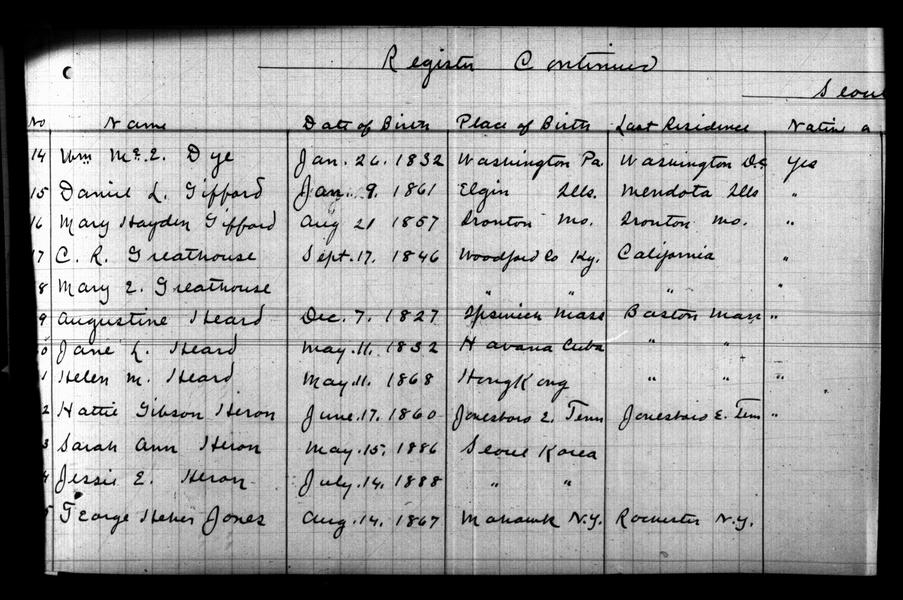 Register Continued
Seoul
No Name Date of Birth Place of Birth Last Residence Native a
14 Wm Mc.E. Dye Jan. 26. 1832 Washington Pa. Washington D.C. Yes
15 Daniel L. Gifford Jan. 9. 1861 Elgin Ills. Mendota Ills "
16 Mary Hayden Gifford Aug 21 1857 Ironton Mo. Ironton Mo. "
17 C. R. Greathouse Sept. 17. 1846 Woodford Co Ky. California "
8 Mary E. Greathouse " " " "
9 Augustine Heard Dec. 7. 1827 Ipswich Mass Boston Mass "
0 Jane L. Heard May. 11. 1832 Havana Cuba " " "
1 Helen M. Heard May. 11. 1868 HongKong " " "
2 Hattie Gibson Heron June. 17. 1860 Jonesboro E. Tenn Jonesboro E. Tenn "
3 Sarah Ann Heron May. 15. 1886 Seoul Korea
4 Jessie E. Heron July. 14. 1888 " "
5 George Heber Jones Aug. 14. 1867 Mohawk N.Y. Rochester N.Y.